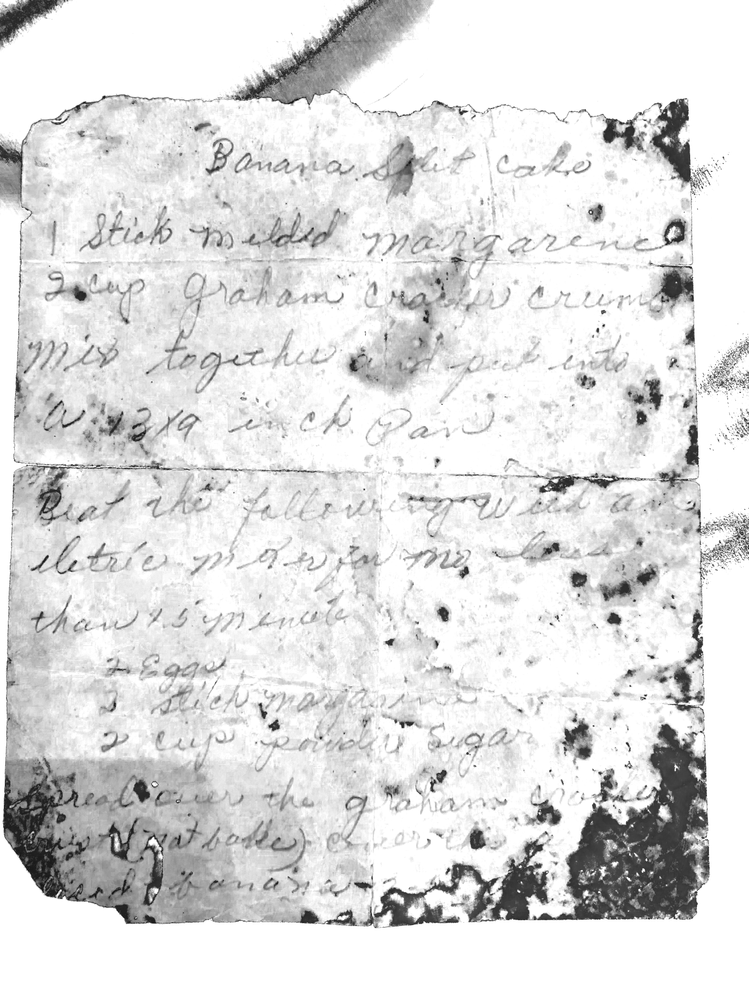 Banana Split cake
1 Stick melded margarene
2 cup Graham cracker crumb
Mix together and put into
a 13x9 inch Pan
Beat the following with an
eletric mixer for no less
than 15 minute
2 Eggs
2 stick margarine
2 cup powder Sugar
Spread over the graham cracker
(not bake) cover this
banana